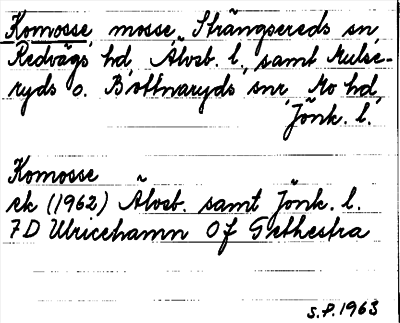 Komosse, mosse, Strängsereds sn,
Redvägs hd, Älvsb. l., samt Mulse-
ryds o. Bottnaryds snr, Mo hd,
Jönk. l.
Komosse
ek (1962) Älvsb. samt Jönk. l.
7D Ulricehamn Of Gethestra
S.P. 1963